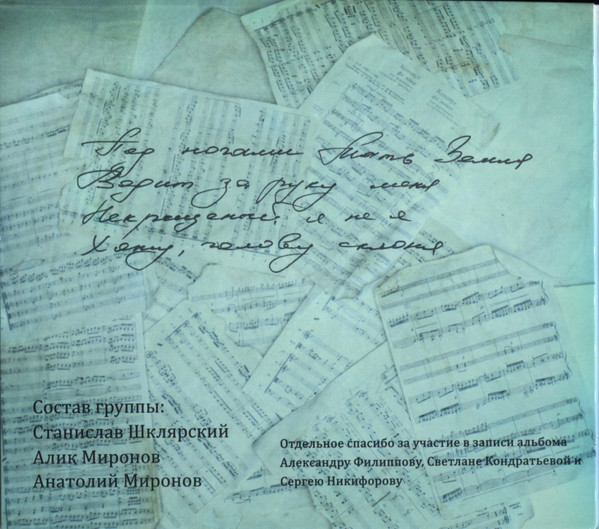 Под ногами Мать Земля
Водит за руку меня
Некрещеный, я не я
Хожу, голову склоня
Состав группы:
Станислав Шклярский
Алик Миронов
Анатолий Миронов
Отдельное спасибо за участие в записи альбома
Александру Филиппову, Светлане Кондратьевой и
Сергею Никифорову